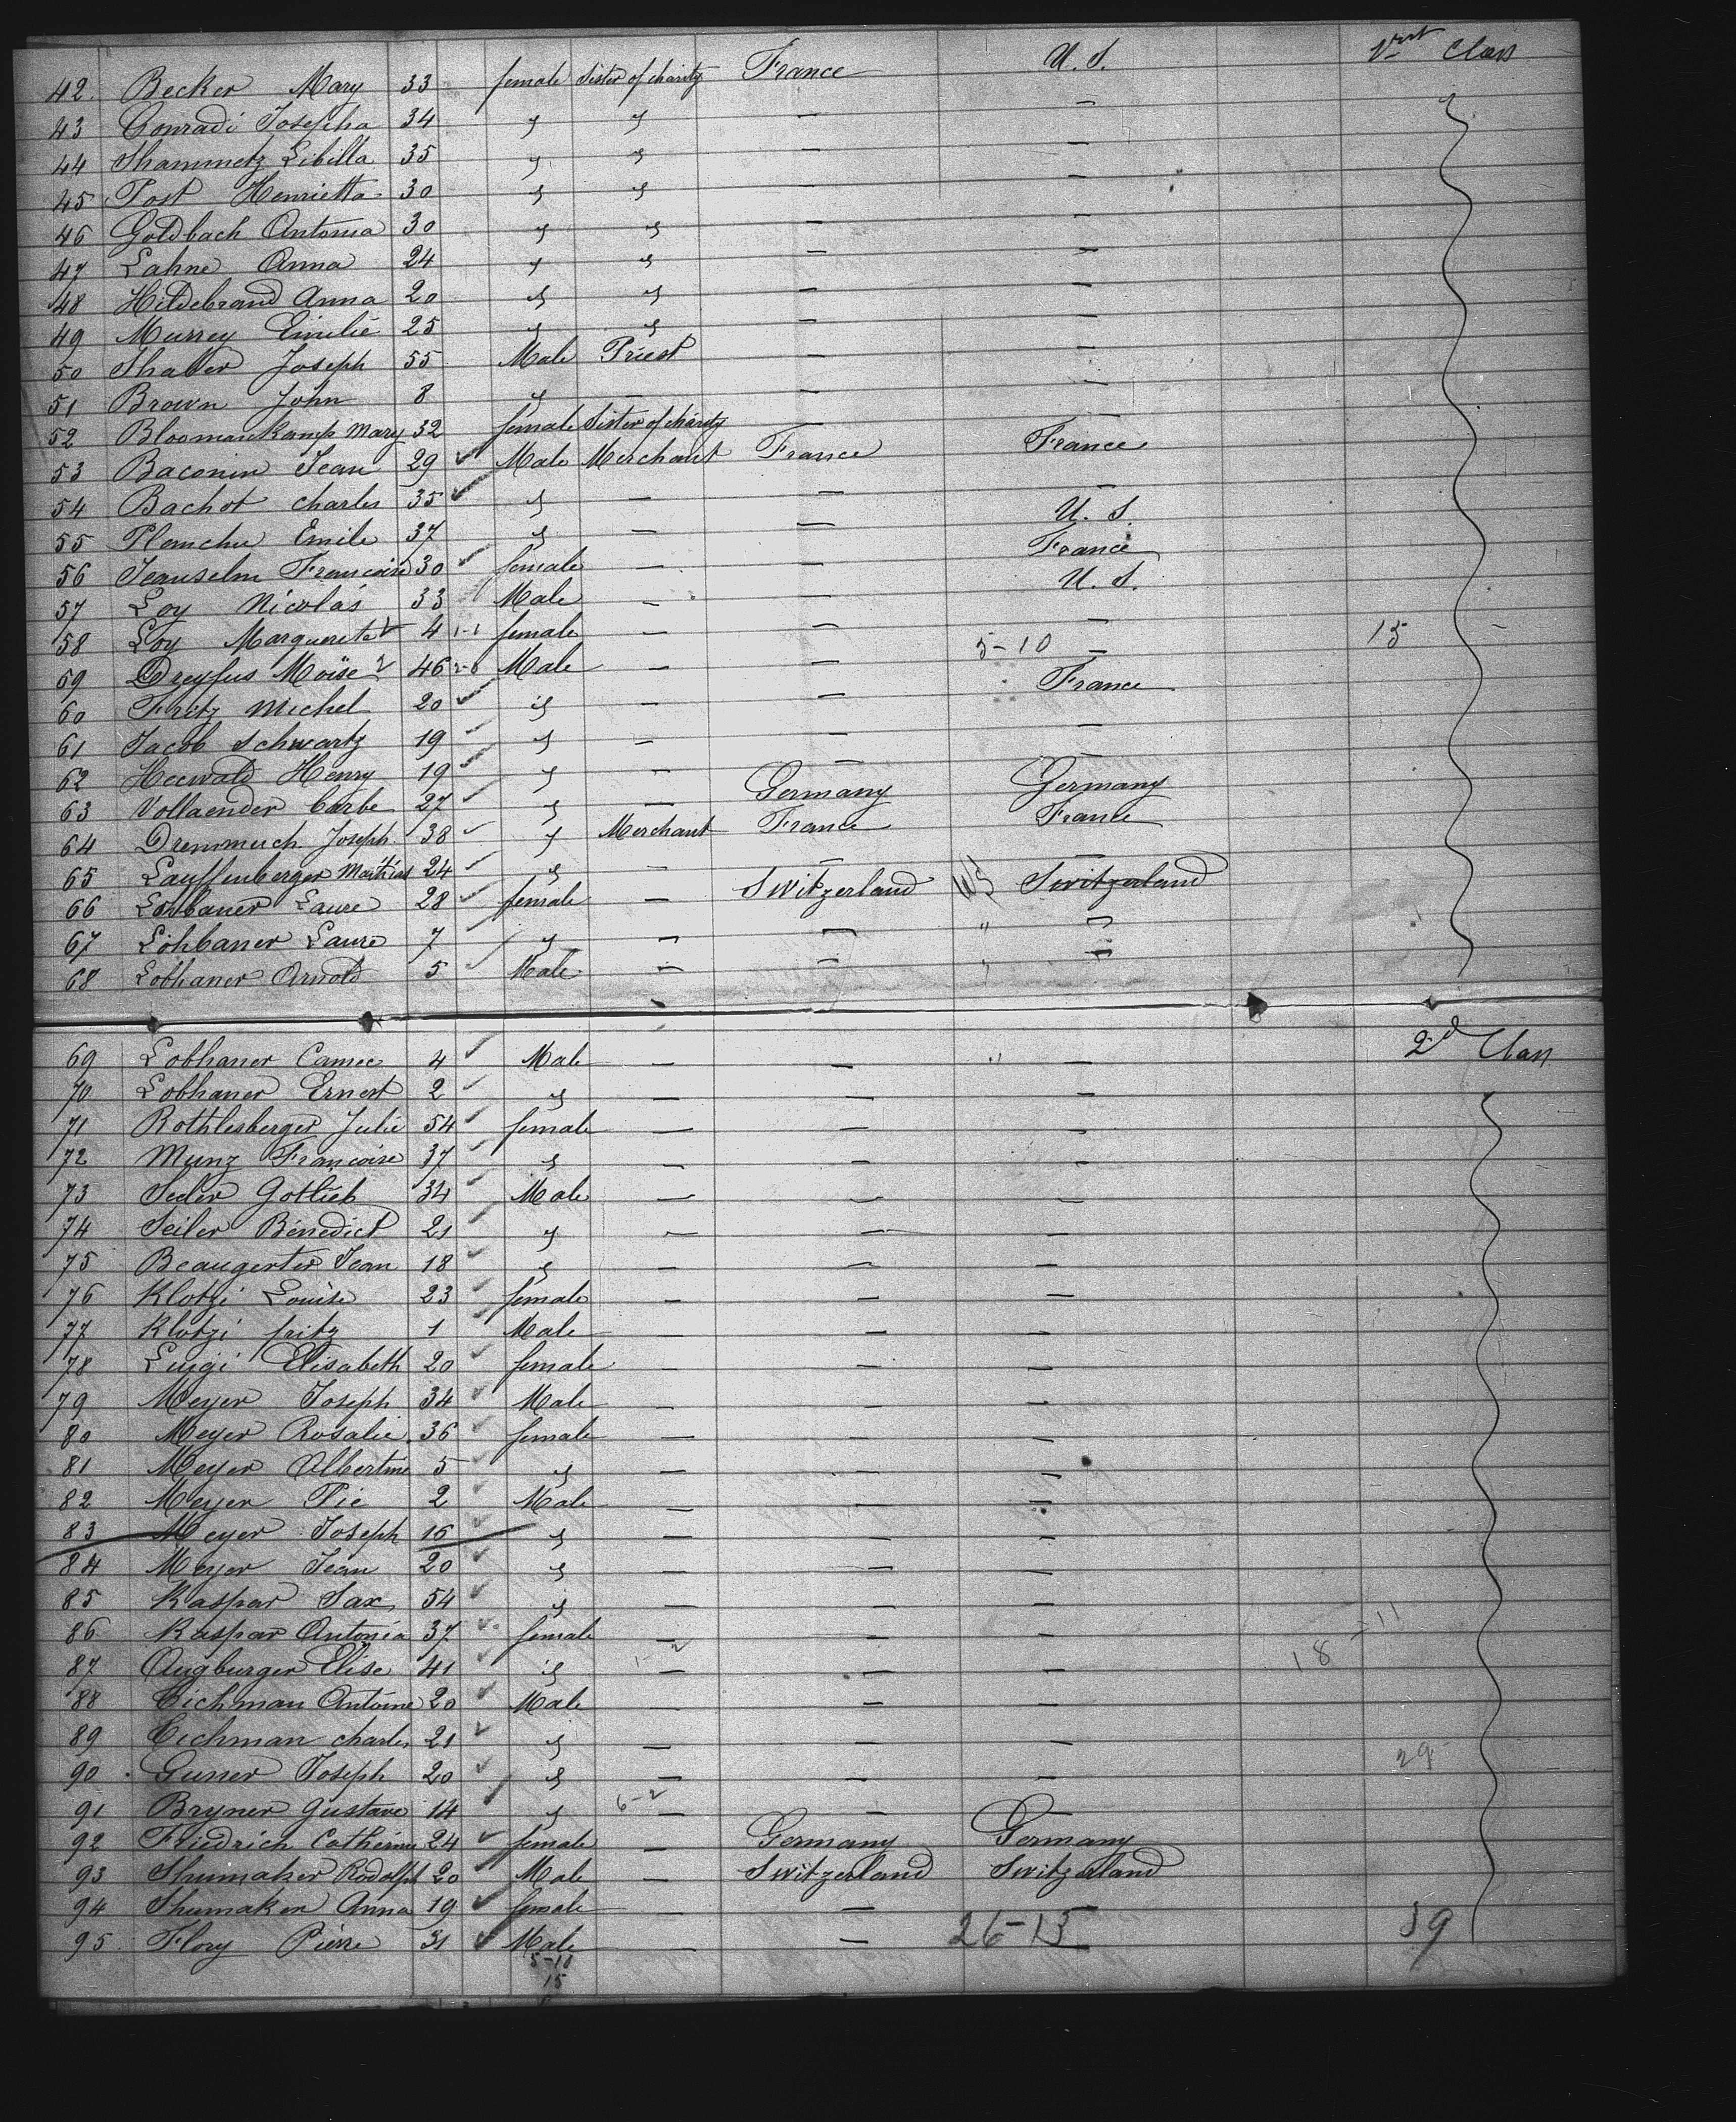 42. Becker Mary 33 female Sister of charity France U. S. 1rst Class
43 Conradi Josepha 34 " " — —
44 Shammetz Libilla 35 " " — —
45 Post Henrietta 30 " " — —
46 Goldbach Antonia 30 " " — —
47 Lahne Anna 24 " " — —
48 Hildebrand Anna 20 " " — —
49 Murrey Emilie 25 " " — —
50 Shaller Joseph 55 Male Priest — —
51 Brown John 8 " — — —
52 Bloomankamp Mary 32 female Sister of charity — —
53 Baconin Jean 29 Male Merchant France France
54 Bachot charles 35 " — — —
55 Planchu Emile 37 " — — U. S.
56 Jeanselm Francoise 30 female — — France
57 Loy Nicolas 33 Male — — U. S.
58 Loy Marguerite 4 1-1 female — — —
5-10 15
59 Dreyfus Moïse 46 2-0 Male — — —
60 Fritz Michel 20 " — — France
61 Jacob Schwartz 19 " — — —
62 Heewald Henry 19 " — — —
63 Vollaender Carbe 27 " — Germany Germany
64 Dremmuch Joseph 38 " Merchant France France
65 Lauffenberger Mathias 24 " — — —
66 Lohbaner Laure 28 female — Switzerland US Switzerland
67 Lohbaner Laure 7 " — — " —
68 Lobhaner Arnold 5 Male — — " —
69 Lobhaner Camee 4 Male — — " — 2d Class
70 Lobhaner Ernest 2 " — — —
71 Rothlesberger Julie 54 female — — —
72 Munz Françoise 37 " — — —
73 Seder Gottlieb 34 Male — — —
74 Seiler Bénedict 21 " — — —
75 Beaugerter Jean 18 " — — —
76 Klotzi Louise 23 female — — —
77 Klotzi fritz 1 Male — — —
78 Luigi Elisabeth 20 female — — —
79 Meyer Joseph 34 Male — — —
80 Meyer Rosalie 36 female — — —
81 Meyer Albertine 5 " — — —
82 Meyer Pie 2 Male — — —
83 Meyer Joseph 16 " — — —
84 Meyer Jean 20 " — — —
85 Kaspar Sax 54 " — — —
86 Kaspar Antonia 37 female — — —
1-2 18-11
87 Augburger Elise 41 " — — —
88 Eichman Antoine 20 Male — — —
89 Eichman charles 21 " — — —
90 Gusser Joseph 20 " — — — 29
91 Bryner Gustave 14 " 6-2 — — —
92 Friedrich Catherine 24 female — Germany Germany
93 Shumaker Rodolph 20 Male — Switzerland Switzerland
94 Shumaker Anna 19 female — — —
95 Flory Pierre 31 Male — — 26-13 39
5-10
15